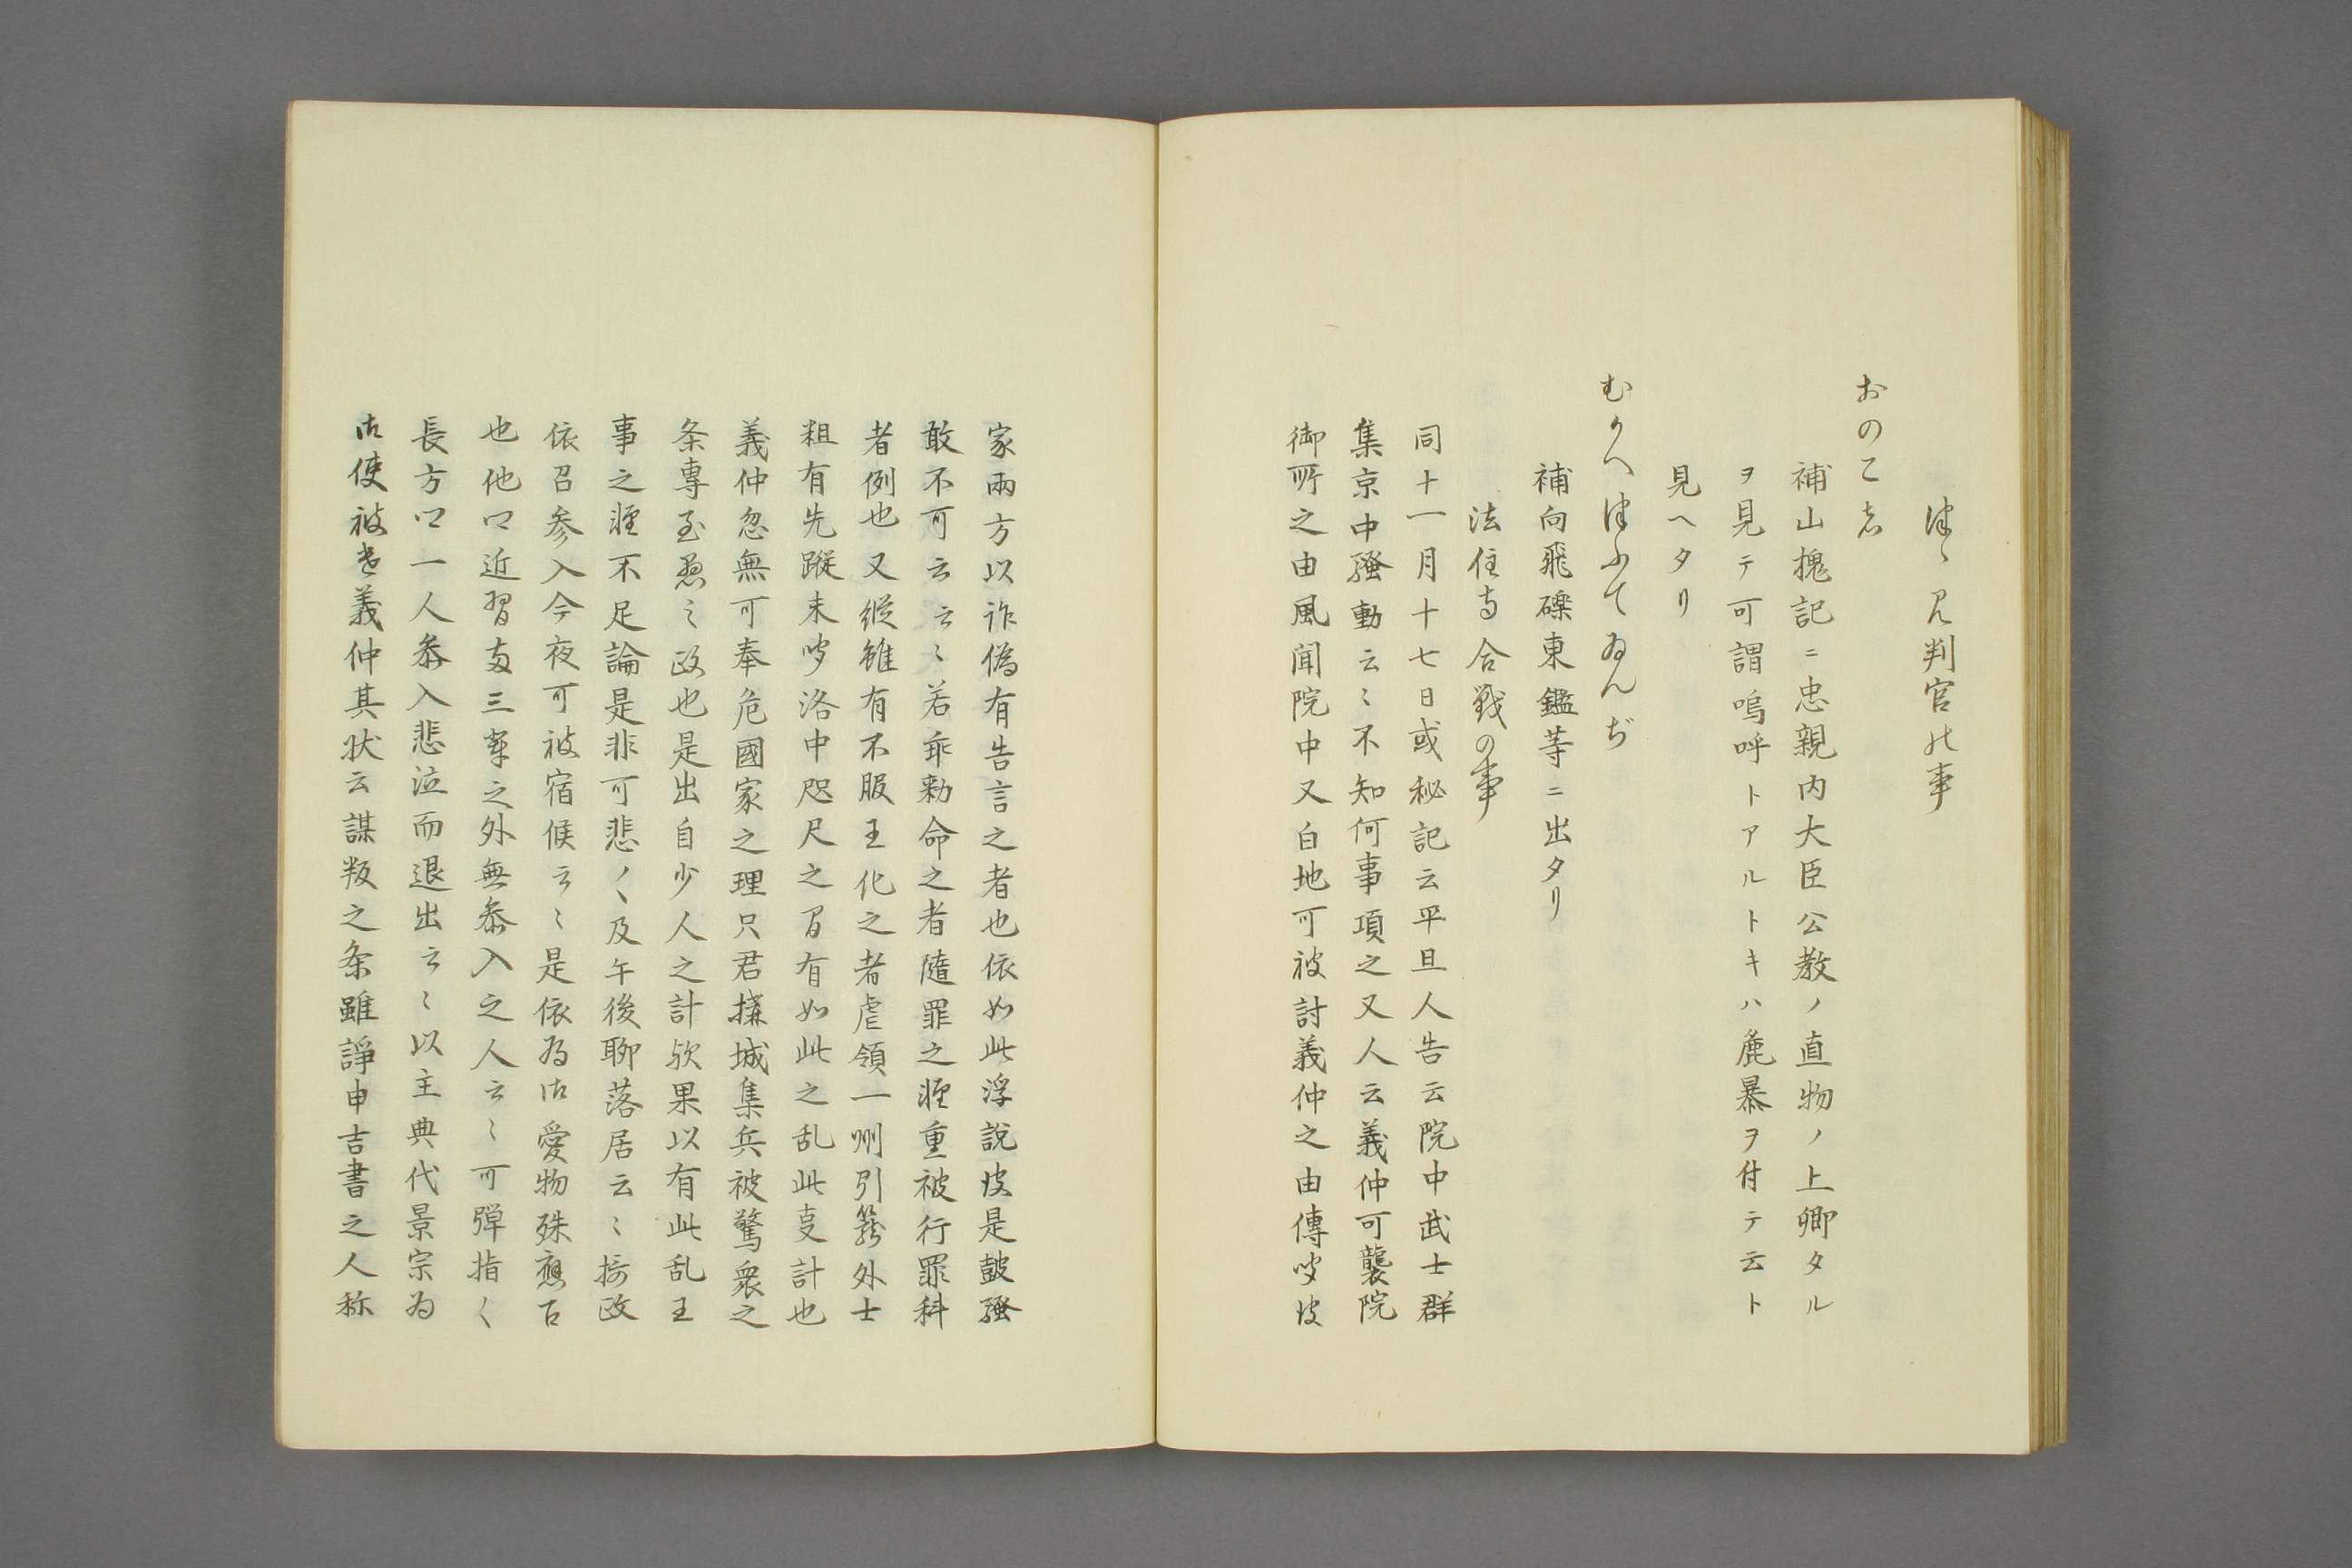 つゝみ判官の事
おのこ
補山槐記ニ忠親内大臣公教ノ直物ノ上卿タル
ヲ見テ可謂嗚呼トアルトキハ麁暴ヲ付テ云ト
見ヘタリ
むかへつぶてゐんぢ
補向飛礫東鑑等ニ出タリ
法住寺合戦の事
同十一月十七日或秘記云平旦人告云院中武士群
集京中騒動云〻不知何事項之又人云義仲可襲院
御所之由風聞院中又自地可被討義仲之由傳
家兩方以詐偽有告言之者也依如此浮説彼是皷騒
敢不可云云〻若乖勅命之者隨罪之軽重被行罪科
者例也又縦雖有不服王化之者虐領一州引籠外士
粗有先蹤未聞洛中咫尺之間有如此之乱此㕝計也
義仲忽無可奉危國家之理只君搆城集兵被驚衆之
条專至愚之政也是出自少人之計欤果以有此乱王
事之軽不足論是非可悲〳〵及午後聊落居云〻摂政
依召参入今夜可被宿候云〻是依為御愛物殊應召
也他口近習両三輩之外無参入之人云〻可弾指〱
長方口一人参入悲泣而退出云〻以主典代景宗為
御使被遣義仲其状云謀叛之条雖諍申告書之人称